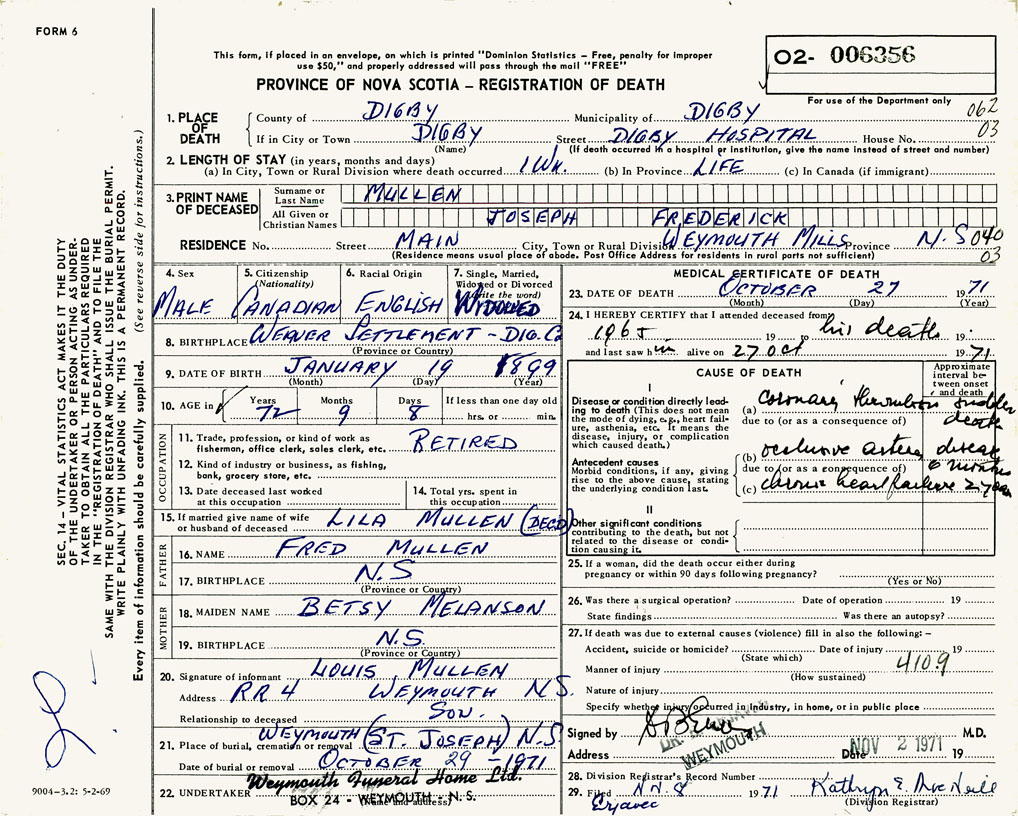 FORM 6
This form, if placed in an envelope, on which is printed "Dominion Statistics – Free, penalty for improper
use $50," and properly addressed will pass through the mail "FREE"
PROVINCE OF NOVA SCOTIA – REGISTRATION OF DEATH
02- 006356
For use of the Department only
062
03
1. PLACE OF DEATH
County of DIGBY Municipality of DIGBY
If in City or Town DIGBY Street DIGBY HOSPITAL House No.
(Name) (If death occurred in a hospital or institution, give the name instead of street and number)
2. LENGTH OF STAY (in years, months and days)
(a) In City, Town or Rural Division where death occurred 1 WK. (b) In Province LIFE (c) In Canada (if immigrant)
3. PRINT NAME OF DECEASED
Surname or Last Name MULLEN
All Given or Christian Names JOSEPH FREDERICK
RESIDENCE No. Street MAIN City, Town or Rural Division WEYMOUTH MILLS Province N.S 040
(Residence means usual place of abode. Post Office Address for residents in rural parts not sufficient) 03
4. Sex MALE
5. Citizenship (Nationality) CANADIAN
6. Racial Origin ENGLISH
7. Single, Married, Widowed or Divorced (write the word) WIDOWED
8. BIRTHPLACE WEAVER SETTLEMENT - DIG. Co
(Province or Country)
9. DATE OF BIRTH JANUARY 19 1899
(Month) (Day) (Year)
10. AGE in Years 72 Months 9 Days 8 If less than one day old hrs. or min.
OCCUPATION
11. Trade, profession, or kind of work as fisherman, office clerk, sales clerk, etc. RETIRED
12. Kind of industry or business, as fishing, bank, grocery store, etc.
13. Date deceased last worked at this occupation
14. Total yrs. spent in this occupation
15. If married give name of wife or husband of deceased LILA MULLEN (DEC'D)
FATHER
16. NAME FRED MULLEN
17. BIRTHPLACE N.S
(Province or Country)
MOTHER
18. MAIDEN NAME BETSY MELANSON
19. BIRTHPLACE N.S.
(Province or Country)
20. Signature of informant LOUIS MULLEN
Address RR 4 WEYMOUTH N.S.
Relationship to deceased SON.
21. Place of burial, cremation or removal WEYMOUTH (ST. JOSEPH) N.S
Date of burial or removal OCTOBER 29 - 1971
22. UNDERTAKER Weymouth Funeral Home Ltd.
BOX 24 - WEYMOUTH - N. S.
(Name and address)
MEDICAL CERTIFICATE OF DEATH
23. DATE OF DEATH OCTOBER 27 1971
(Month) (Day) (Year)
24. I HEREBY CERTIFY that I attended deceased from
1965 19 his death 19
and last saw him alive on 27 Oct 1971
CAUSE OF DEATH
Approximate interval between onset and death
I
Disease or condition directly leading to death (This does not mean the mode of dying, e.g., heart failure, asthenia, etc. It means the disease, injury, or complication which caused death.)
(a) Coronary thrombosis sudden death
due to (or as a consequence of)
Antecedent causes
Morbid conditions, if any, giving rise to the above cause, stating the underlying condition last.
(b) occlusive artery disease 6 months
due to (or as a consequence of)
(c) chronic heart failure 2 years
II
Other significant conditions contributing to the death, but not related to the disease or condition causing it.
25. If a woman, did the death occur either during pregnancy or within 90 days following pregnancy?
(Yes or No)
26. Was there a surgical operation? Date of operation 19
State findings Was there an autopsy?
27. If death was due to external causes (violence) fill in also the following: –
Accident, suicide or homicide? Date of injury 19
(State which)
4109
Manner of injury
(How sustained)
Nature of injury
Specify whether injury occurred in industry, in home, or in public place
Signed by M.D.
DR.
WEYMOUTH
Address Date NOV 2 1971 19
28. Division Registrar's Record Number
29. Filed Nov. 8 1971 Kathryn E. MacNeill
(Division Registrar)
SEC. 14 – VITAL STATISTICS ACT MAKES IT THE DUTY
OF THE UNDERTAKER OR PERSON ACTING AS UNDER-
TAKER TO OBTAIN ALL THE PARTICULARS REQUIRED
IN THE "REGISTRATION OF DEATH" AND TO FILE THE
SAME WITH THE DIVISION REGISTRAR WHO SHALL ISSUE THE BURIAL PERMIT.
WRITE PLAINLY WITH UNFADING INK. THIS IS A PERMANENT RECORD.
Every item of information should be carefully supplied. (See reverse side for instructions.)
9004-3.2: 5-2-69